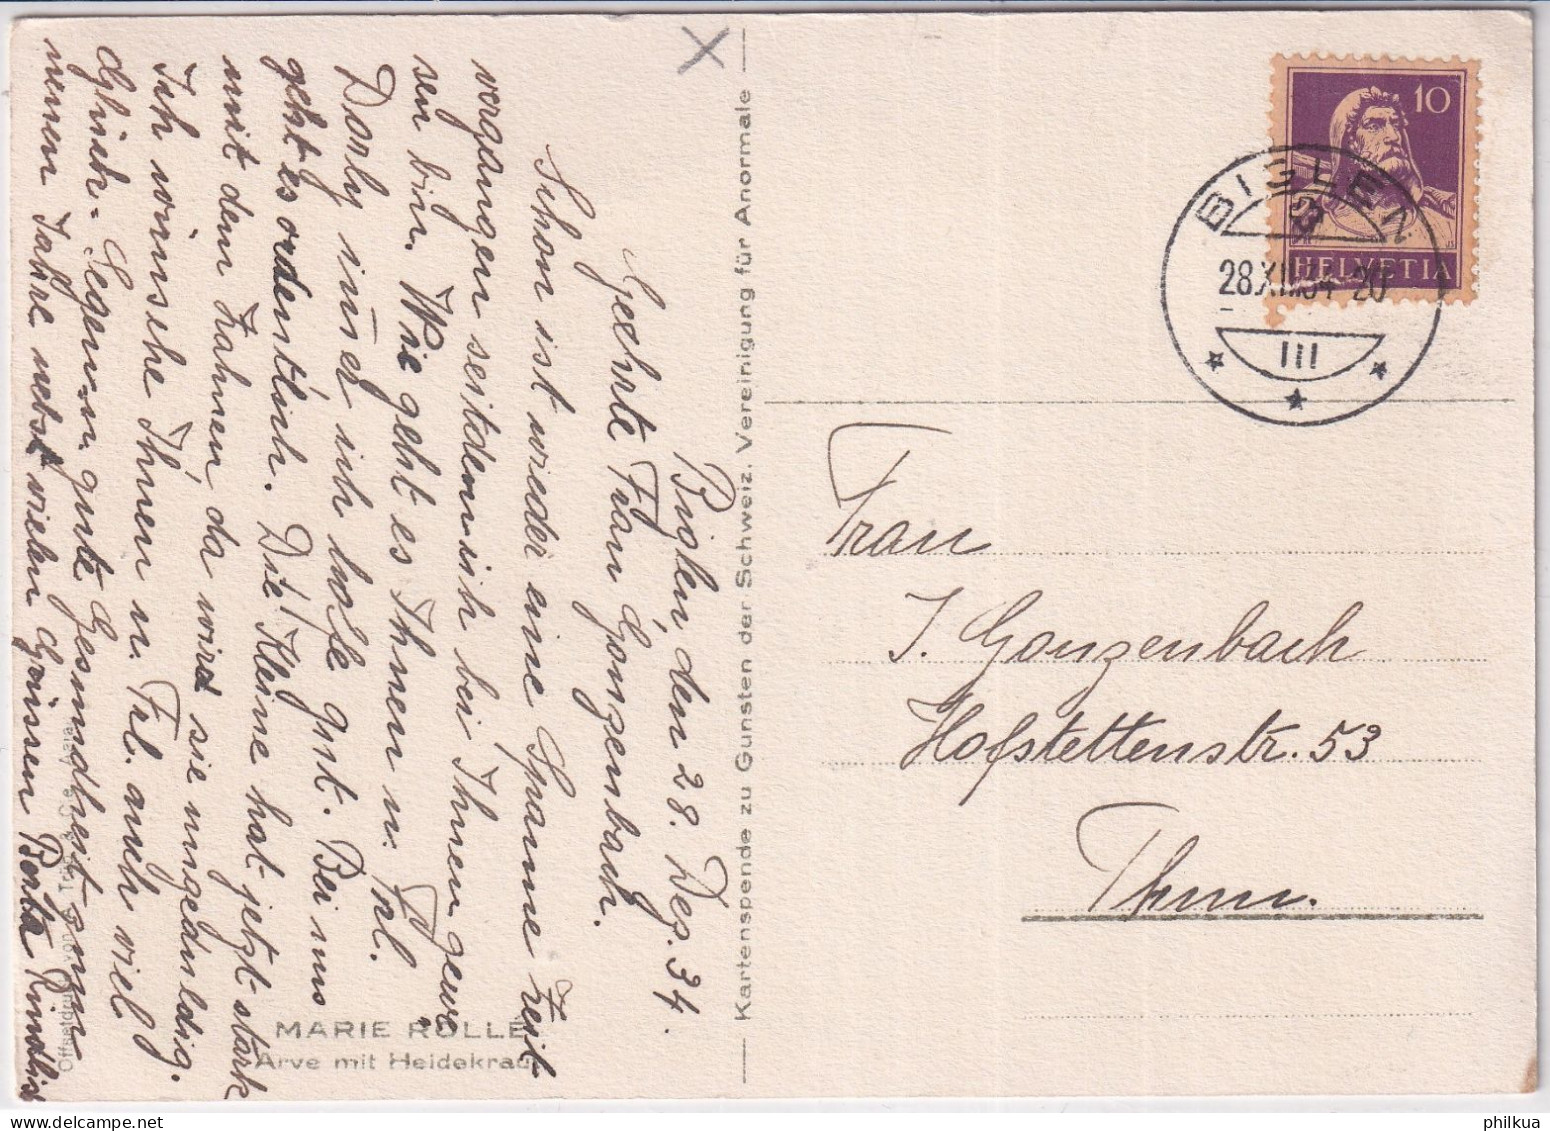 Biglen, den 28. Dez. 34.
Geehrte Frau Gonzenbach.
Schon ist wieder eine Spanne Zeit
vergangen seitdem ich bei Ihnen gewe
sen bin. Wie geht es Ihnen u. Frl.
Dorly im̄er ich hoffe gut. Bei uns
geht es ordentlich. Die Kleine hat jetzt stark
mit dem Zahnen da wird sie ungeduldig.
Ich wünsche Ihnen u. Frl. auch viel
Glück- Segen u. gute Gesundheit zum
neuen Jahre nebst vielen Grüssen Berta
MARIE ROLLÉ
Arve mit Heidekraut
Offsetdruck von
Kartenspende zu Gunsten der Schweiz. Vereinigung für Anormale
10
HELVETIA
BIGLEN
28.XII.34-20
III
Frau
J. Gonzenbach
Hofstettenstr. 53
Thun.
philkua